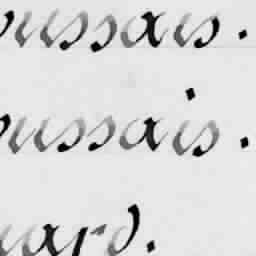 oussais.
oussais.
uard.